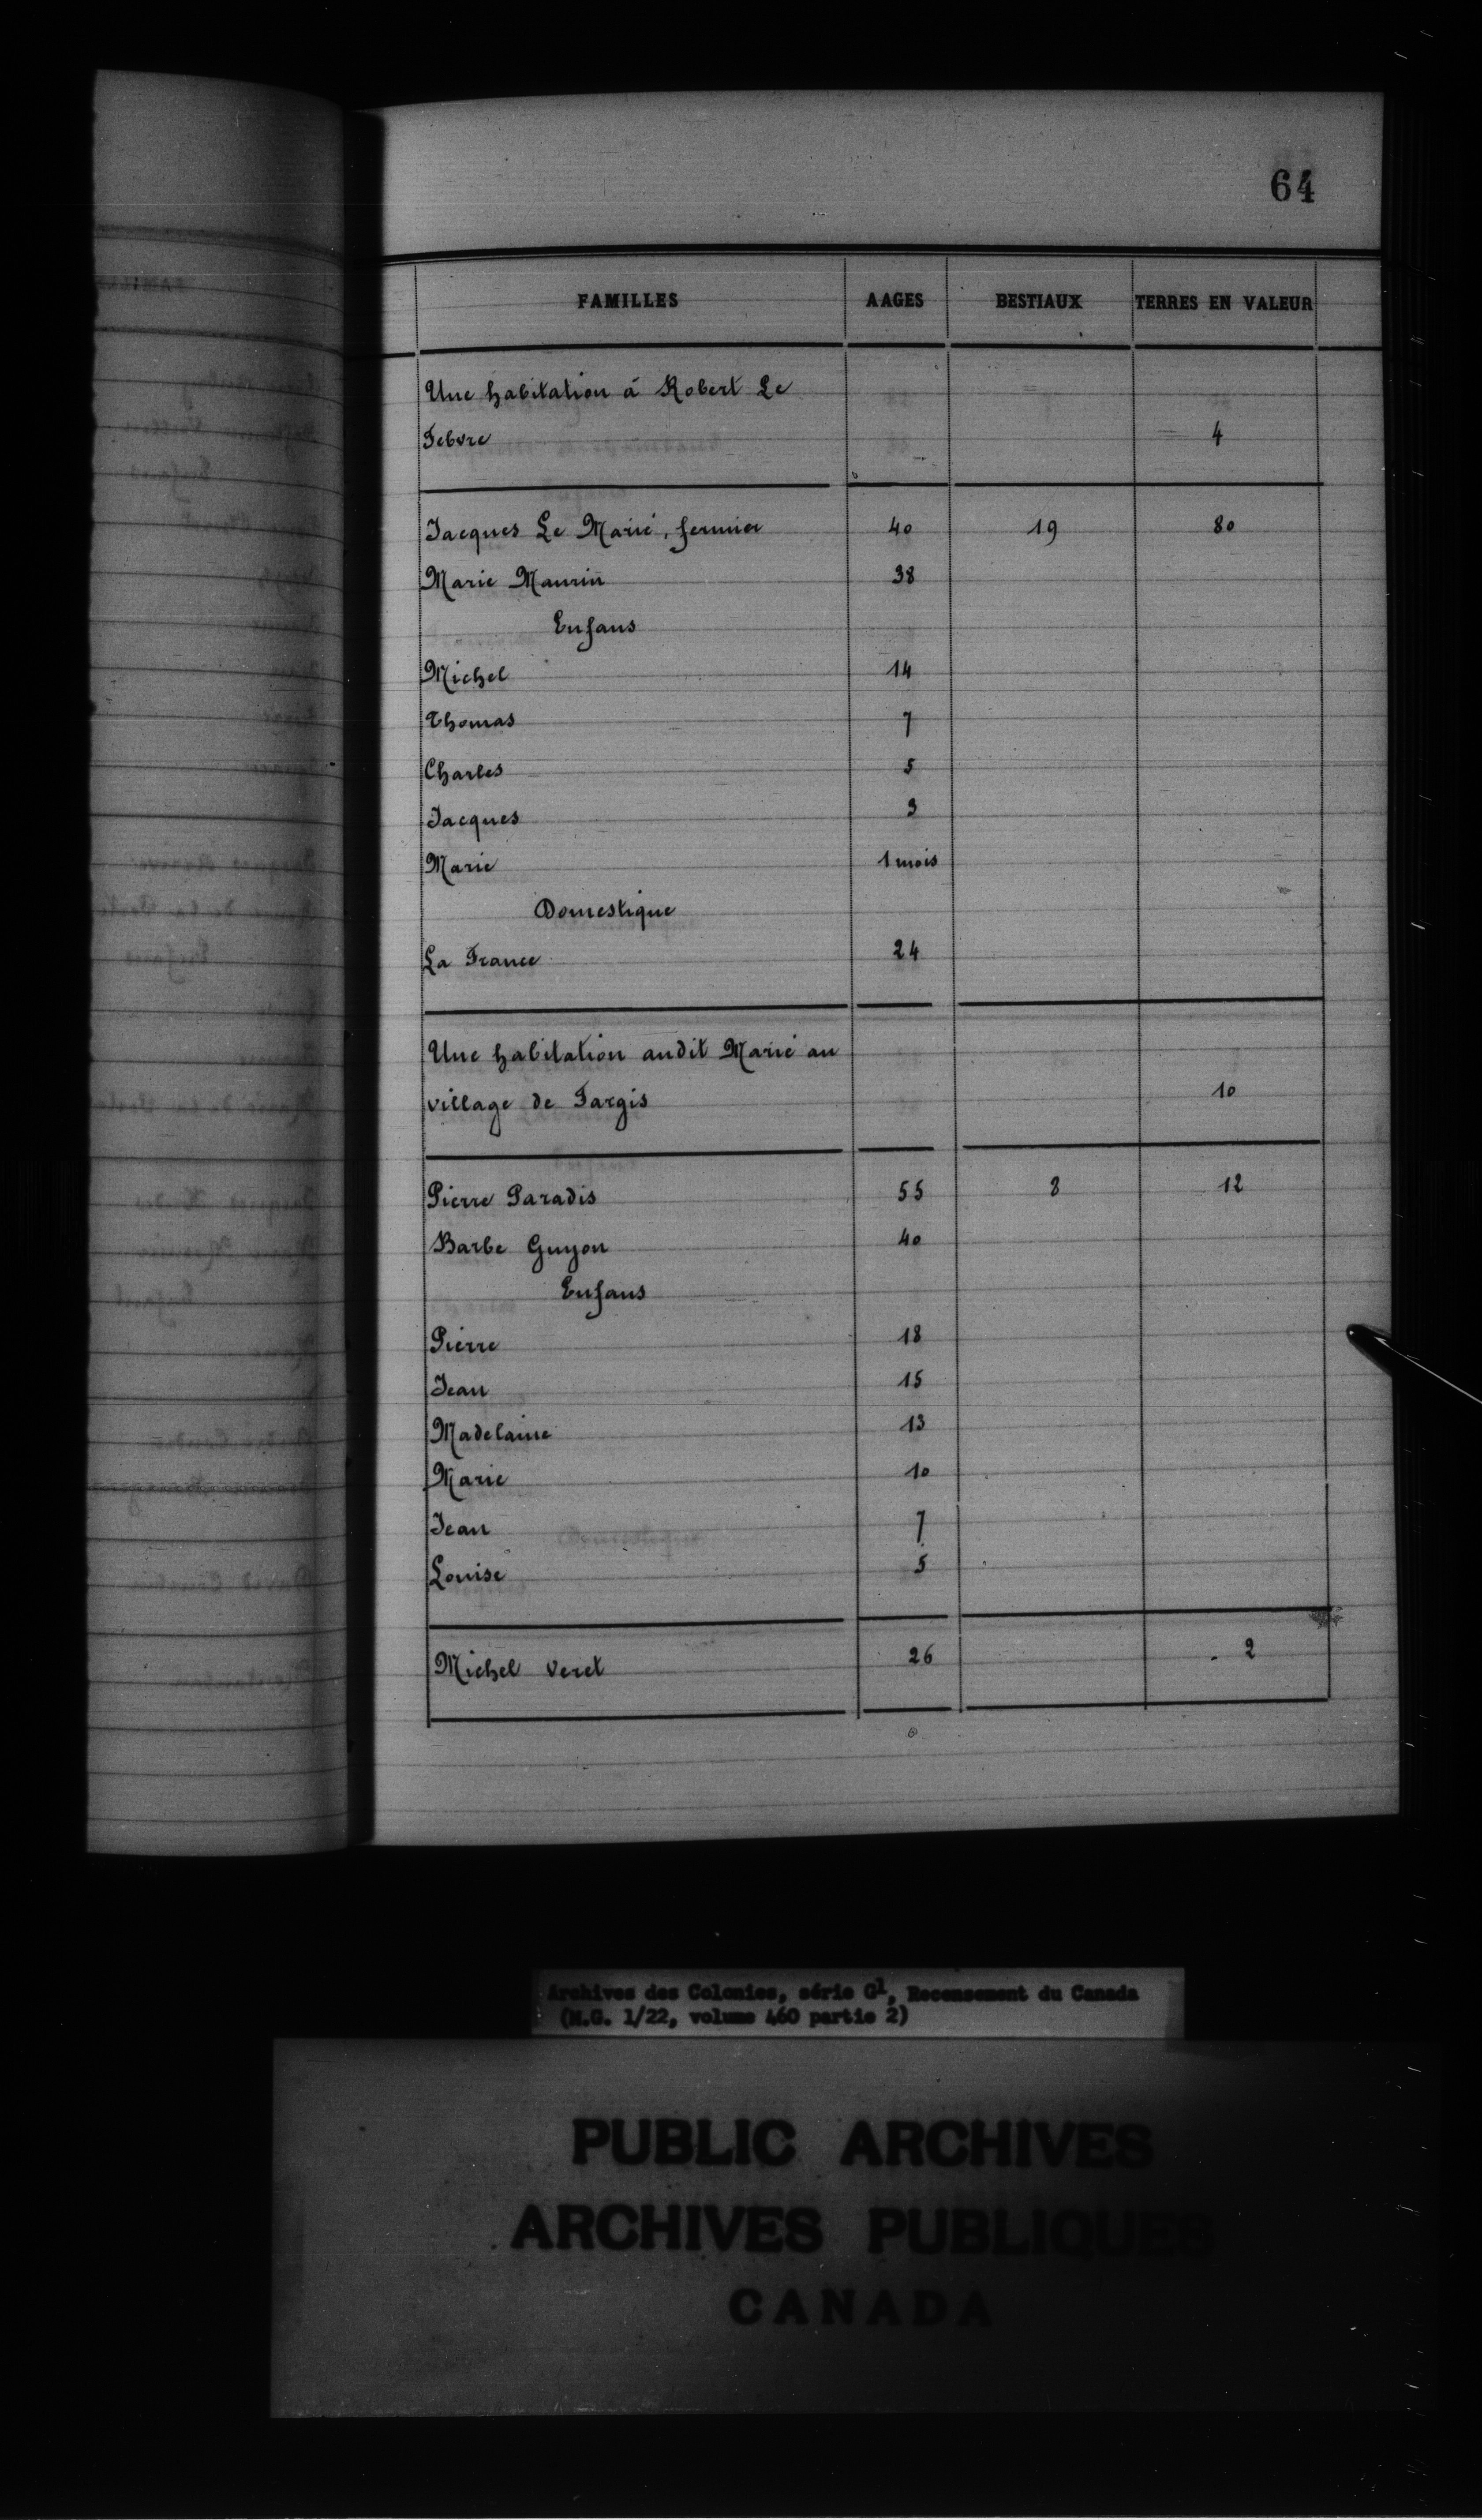 64
FAMILLES AAGES BESTIAUX TERRES EN VALEUR
Une habitation à Robert Le
Febvre 4
Jacques Le Marié, fermier 40 19 80
Marie Maurin 38
Enfans
Michel 14
Thomas 7
Charles 5
Jacques 3
Marie 1 mois
Domestique
La France 24
Une habitation audit Marié au
village de Fargis 10
Pierre Paradis 55 8 12
Barbe Guyon 40
Enfans
Pierre 18
Jean 15
Madelaine 13
Marie 10
Jean 7
Louise 5
Michel Veret 26 2
Archives des Colonies, série G1, Recensement du Canada
(M.G. 1/22, volume 460 partie 2)
PUBLIC ARCHIVES
ARCHIVES PUBLIQUES
CANADA